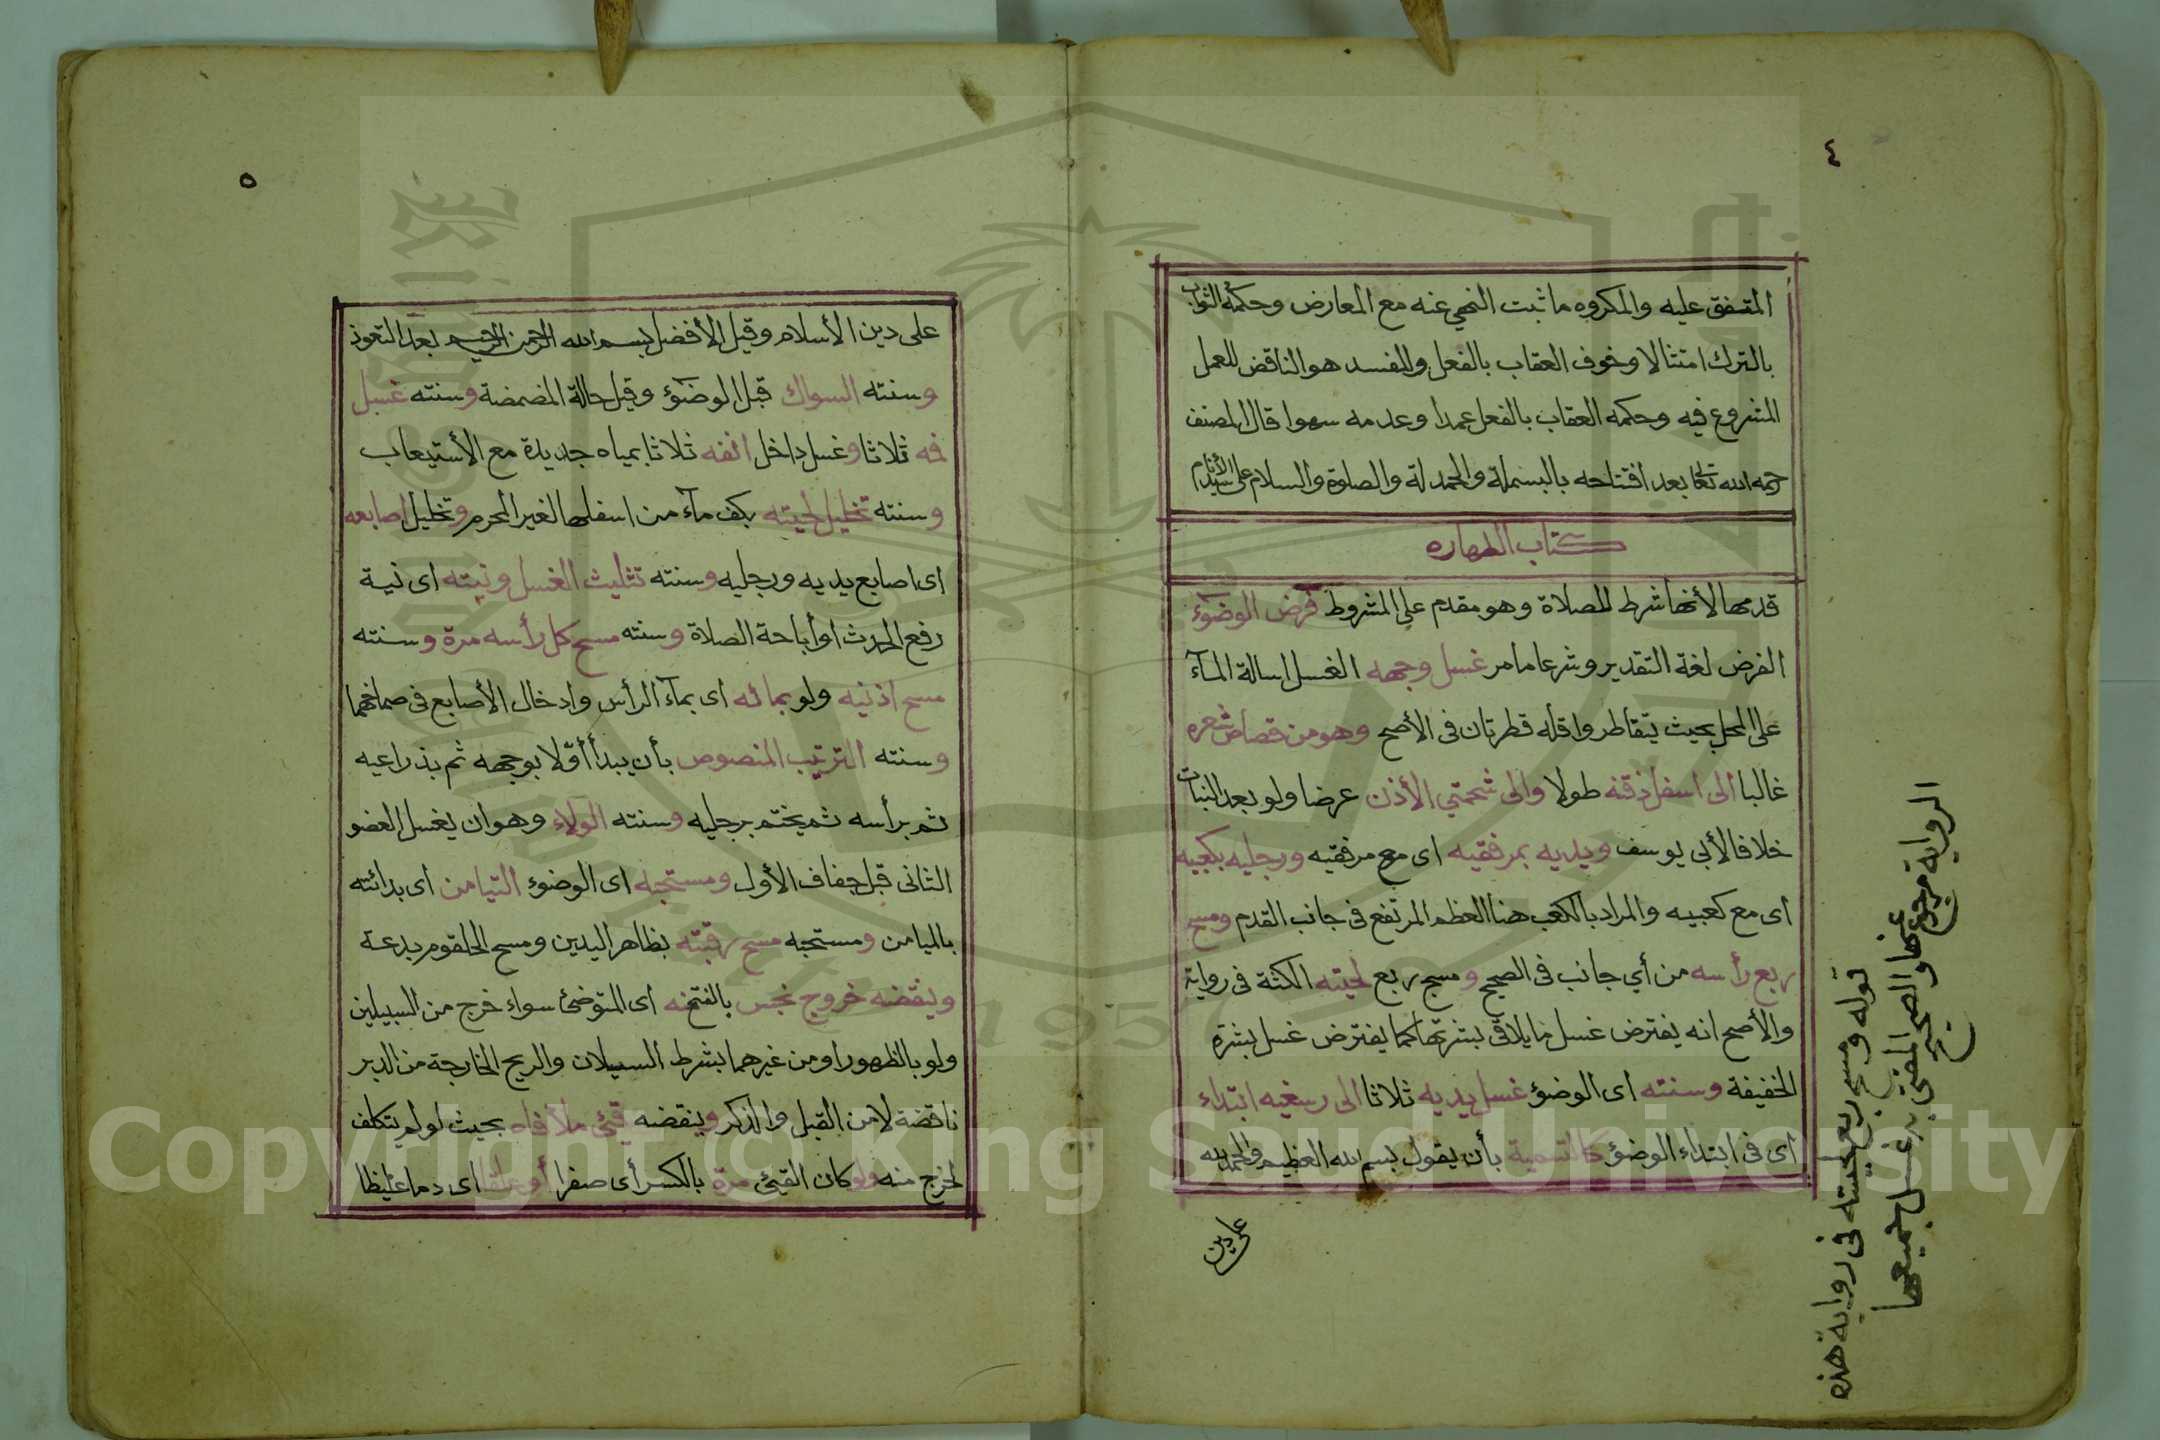 ٤
المتفق عليه والمكروه ما ثبت النهي عنه مع المعارض وحكمه الثواب
بالترك امتثالا وخوف العقاب بالفعل والمفسد هو الناقض للعمل
المشروع فيه وحكمه العقاب بالفعل عمدا وعدمه سهوا قال المصنف
رحمه الله تعالى بعد افتتاحه بالبسملة والحمدلة والصلوة والسلام على سيد الأنام
كتاب الطهاره
قدمها لأنها شرط للصلاة وهو مقدم على المشروط فرض الوضوء
الفرض لغة التقدير وشرعا ما مر غسل وجهه الغسل اسالة المآء
على المحل بحيث يتقاطر واقله قطرتان فى الأصح وهو من قصاص شعره
غالبا الى اسفل ذقنه طولا والى شحمتي الأذن عرضا ولو بعد النبات
خلافا لأبي يوسف ويديه بمرفقيه اى مع مرفقيه ورجليه بكعبيه
اى مع كعبيه والمراد بالكعب هنا العظم المرتفع فى جانب القدم ومسح
ربع رأسه من أي جانب فى الصحيح ومسح ربع لحيته الكثة فى رواية
والأصح انه يفترض غسل ما يلاقى بشرتها كما يفترض غسل بشرة
الخفيفة وسنته اى الوضوء غسل يديه ثلاثا الى رسغيه ابتداء
اى فى ابتداء الوضوء كالتسمية بأن يقول بسم الله العظيم والحمد لله
على دين
قوله ومسح ربع لحيته فى رواية هذه
الرواية مرجوع عنها والصحيح المفتى به غسل جميعها
٥
على دين الأسلام وقيل الأفضل بسم الله الرحمن الرحيم بعد التعوذ
وسنته السواك قبل الوضوء وقيل حالة المضمضة وسنته غسل
فمه ثلاثا وغسل داخل انفه ثلاثا بمياه جديدة مع الأستيعاب
وسنته تخليل لحيته بكف مآء من اسفلها لغير المحرم وتخليل اصابعه
اى اصابع يديه ورجليه وسنته تثليث الغسل ونيته اى نية
رفع الحدث اوأباحة الصلاة وسنته مسح كل رأسه مرة وسنته
مسح اذنيه ولو بمائه اى بمآء الرأس وادخال الأصابع فى صماخهما
وسنته الترتيب المنصوص بأن يبدأ أوّلا بوجهه ثم بذراعيه
ثم برأسه ثم يختم برجليه وسنته الولاء وهو ان يغسل العضو
الثانى قبل جفاف الأول ومستحبه اى الوضوء التيامن اى بدائته
بالميامن ومستحبه مسح رقبته بظاهر اليدين ومسح الحلقوم بدعة
وينقضه خروج نجس بالفتح منه اى المتوضئ سواء خرج من السبيلين
ولو بالظهور او من غيرهما بشرط السيلان والريح الخارجة من الدبر
ناقضة لا من القبل والذكر وينقضه قيئ ملأ فاه بحيث لو لم يتكلف
لخرج منه ولو كان القيئ مرة بالكسر أى صفرا أو علقا اى دما غليظا
Copyright © King Saud University